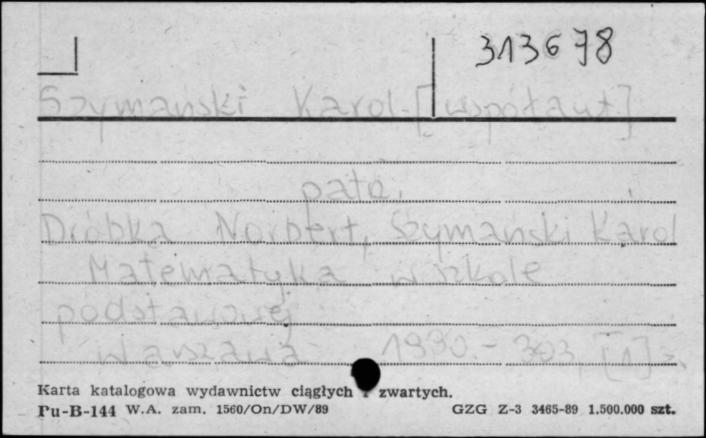 313678
Szymański Karol. [współaut]
patrz.
Dróbka Norbert, Szymański Karol
Matematyka w szkole
podstawowej
Warszawa 1990. - 303, [1] s.
Karta katalogowa wydawnictw ciągłych i zwartych.
Pu-B-144 W.A. zam. 1560/On/DW/89 GZG Z-3 3465-89 1.500.000 szt.